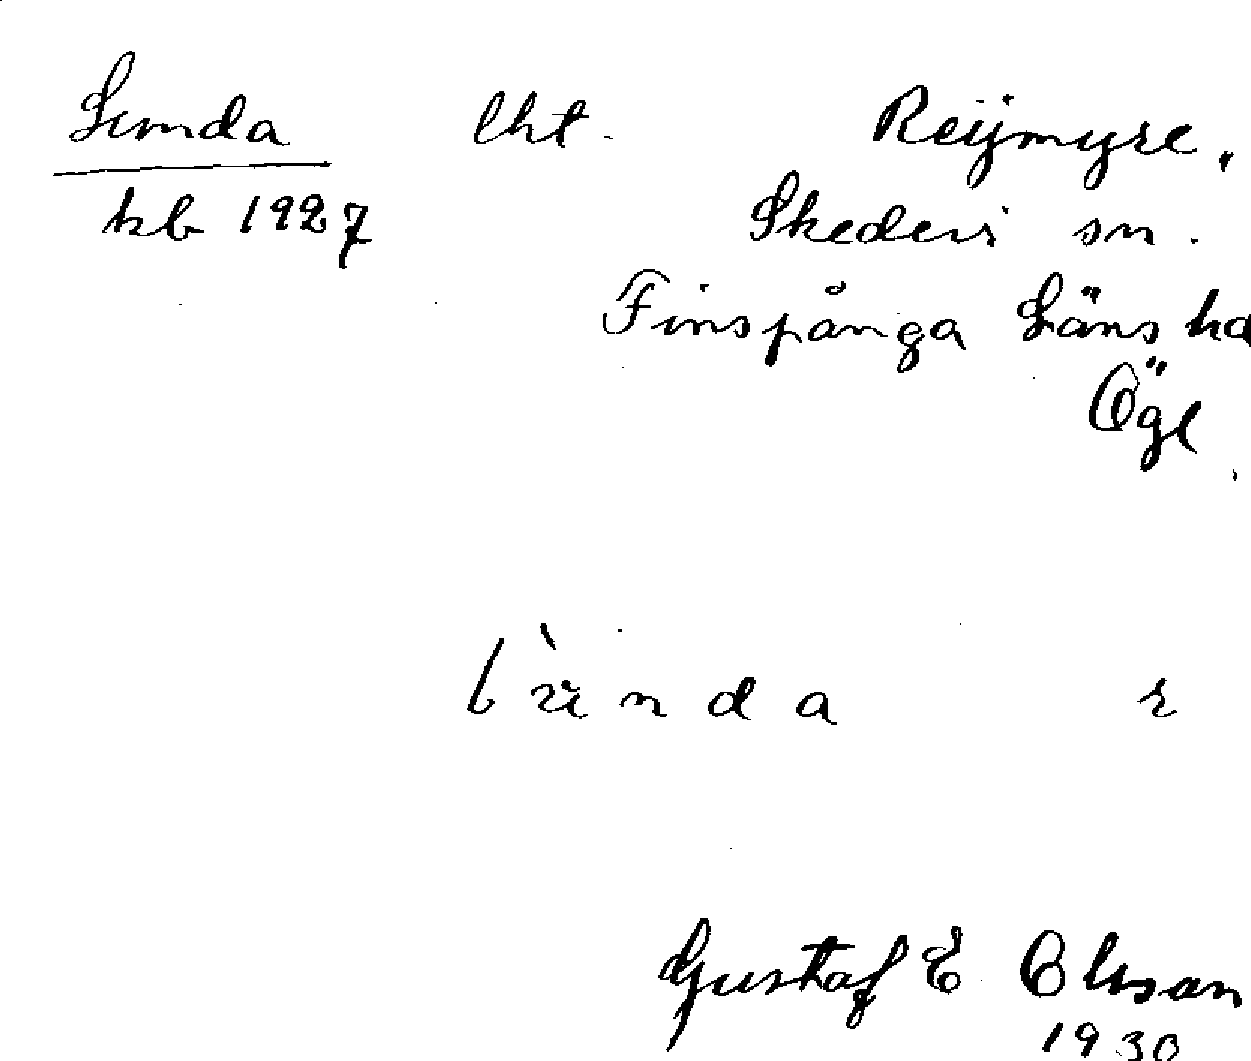 Lunda lht. Reijmyre,
kb 1927 Skedevi sn.
Finspånga Läns hd
Ögl.
r
Gustaf E Olsson
1930